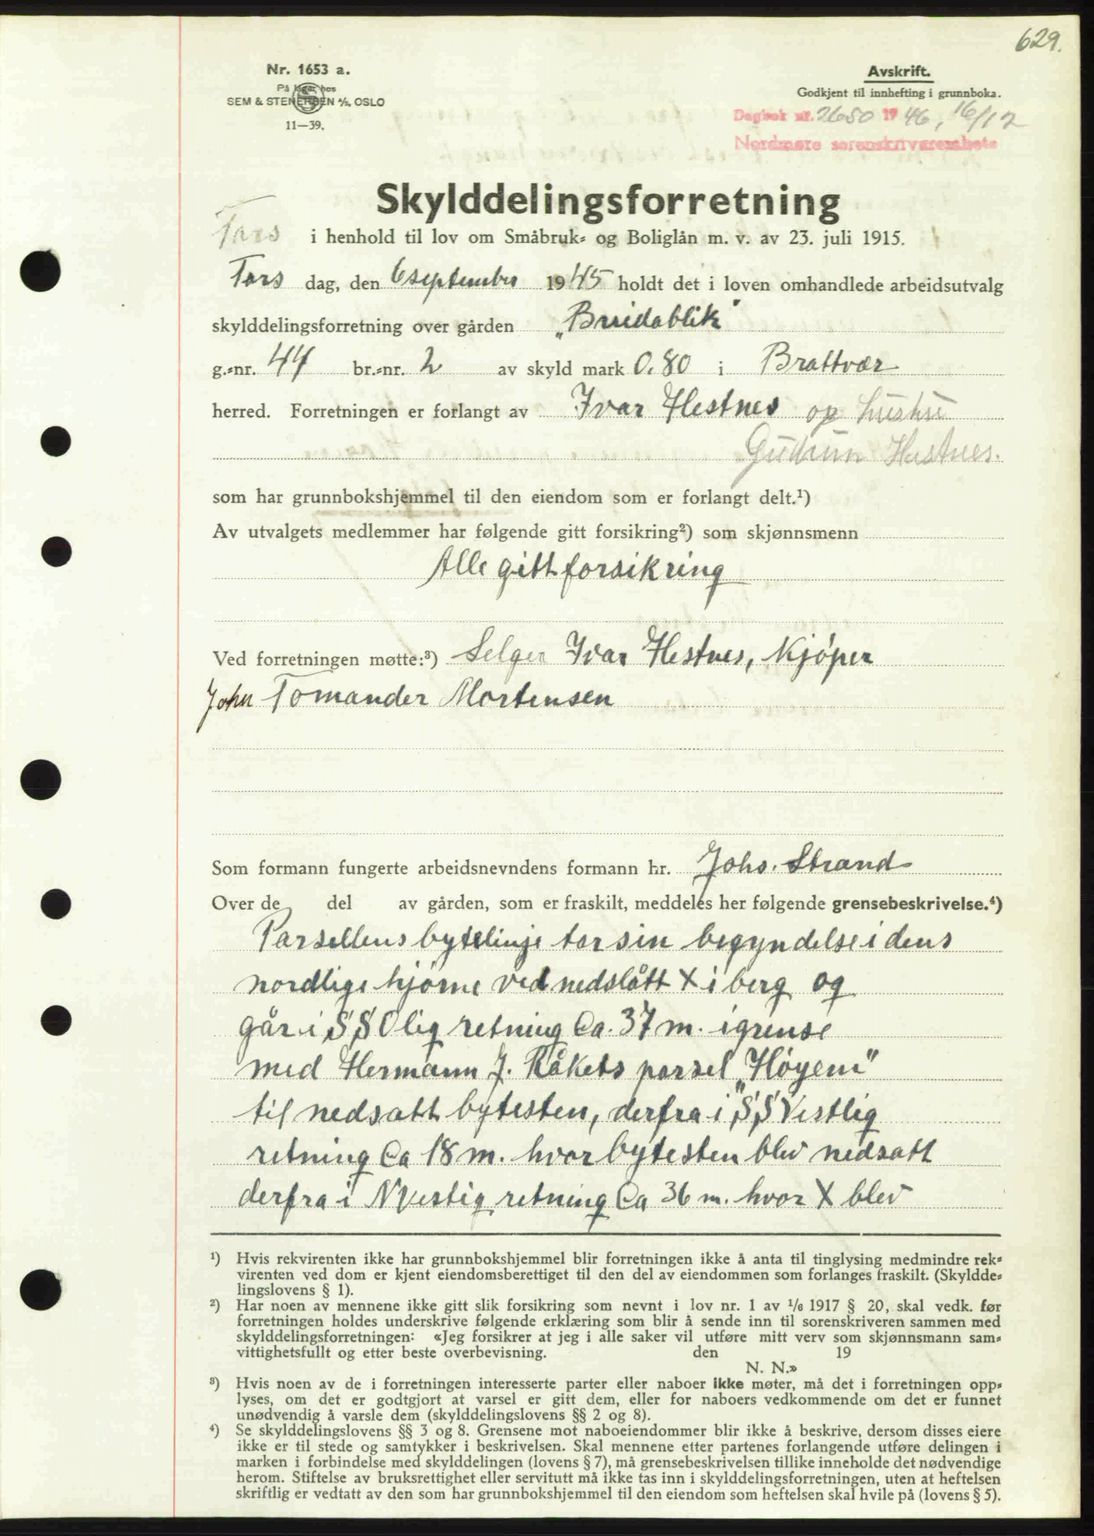 629.
Nr. 1653 a.
På lager hos
SEM & STENERSEN A/S, OSLO
11—39.
Avskrift.
Godkjent til innhefting i grunnboka.
Dagbok nr. 2650 1946, 16/12
Nordmøre sorenskriverembete
Skylddelingsforretning
Tors
i henhold til lov om Småbruk- og Boliglån m. v. av 23. juli 1915.
Tors dag, den 6 september 1945 holdt det i loven omhandlede arbeidsutvalg
skylddelingsforretning over gården „Breidablik"
g.-nr. 44 br.-nr. 2 av skyld mark 0.80 i Brattvær
herred. Forretningen er forlangt av Ivar Hestnes og hustru
Gudrun Hestnes.
som har grunnbokshjemmel til den eiendom som er forlangt delt.¹)
Av utvalgets medlemmer har følgende gitt forsikring²) som skjønnsmenn
Alle gitt forsikring
Ved forretningen møtte:³) Selger Ivar Hestnes, Kjøper
John Tomander Mortensen
Som formann fungerte arbeidsnevndens formann hr. Johs. Strand
Over de del av gården, som er fraskilt, meddeles her følgende grensebeskrivelse.⁴)
Parsellens bytelinje tar sin begyndelse i dens
nordlige hjørne ved nedslått X i berg og
går i S S Olig retning Ca. 37 m. i grense
med Hermann J. Råkets parsel „Høgeni"
til nedsatt bytesten, derfra i S S Vestlig
retning Ca 18 m. hvor bytesten blev nedsatt
derfra i N Vestlig retning Ca 36 m. hvor X blev
¹) Hvis rekvirenten ikke har grunnbokshjemmel blir forretningen ikke å anta til tinglysing medmindre rek-
virenten ved dom er kjent eiendomsberettiget til den del av eiendommen som forlanges fraskilt. (Skyldde-
lingslovens § 1).
²) Har noen av mennene ikke gitt slik forsikring som nevnt i lov nr. 1 av 1/6 1917 § 20, skal vedk. før
forretningen holdes underskrive følgende erklæring som blir å sende inn til sorenskriveren sammen med
skylddelingsforretningen: «Jeg forsikrer at jeg i alle saker vil utføre mitt verv som skjønnsmann sam-
vittighetsfullt og etter beste overbevisning. den 19
N. N.»
³) Hvis noen av de i forretningen interesserte parter eller naboer ikke møter, må det i forretningen opp-
lyses, om det er godtgjort at varsel er gitt dem, eller for naboers vedkommende om det er funnet
unødvendig å varsle dem (skylddelingslovens §§ 2 og 8).
⁴) Se skylddelingslovens §§ 3 og 8. Grensene mot naboeiendommer blir ikke å beskrive, dersom disses eiere
ikke er til stede og samtykker i beskrivelsen. Skal mennene etter partenes forlangende utføre delingen i
marken i forbindelse med skylddelingen (lovens § 7), må grensebeskrivelsen tillike inneholde det nødvendige
herom. Stiftelse av bruksrettighet eller servitutt må ikke tas inn i skylddelingsforretningen, uten at heftelsen
skriftlig er vedtatt av den som har grunnbokshjemmel til den eiendom som heftelsen skal hvile på (lovens § 5).